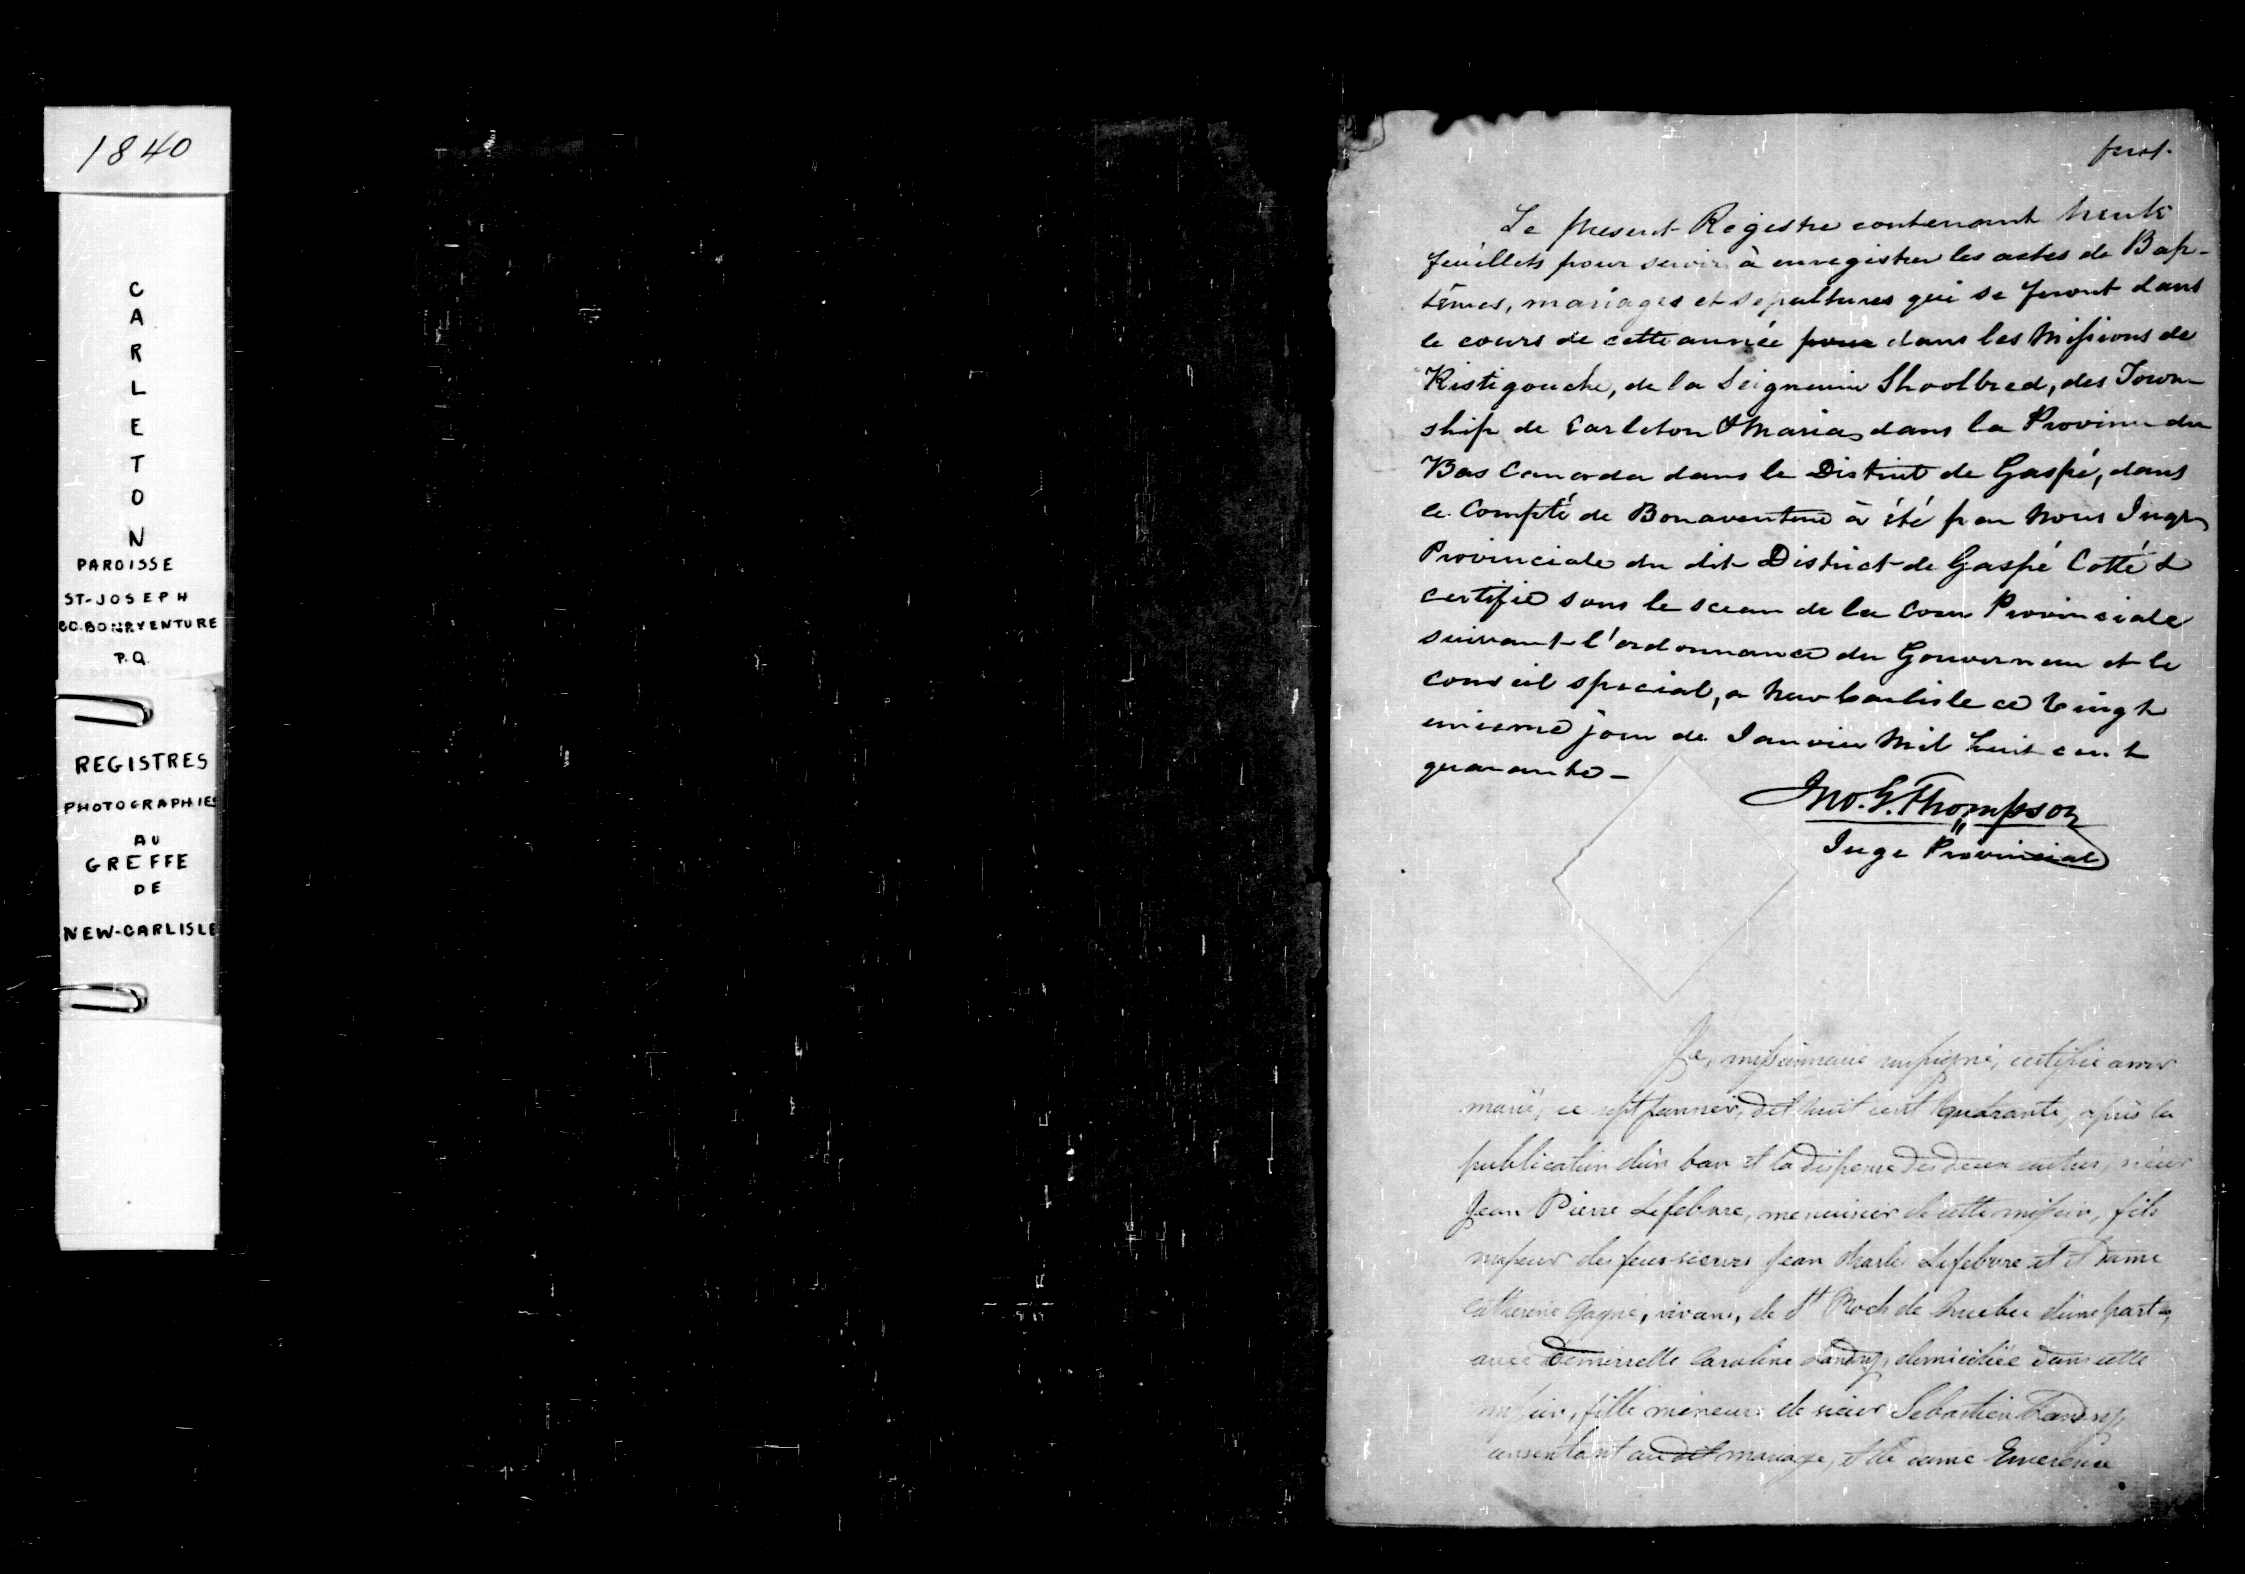 1840
CARLETON
PAROISSE
ST-JOSEPH
CO. BONAVENTURE
P.Q.
REGISTRES
PHOTOGRAPHIES
AU
GREFFE
DE
NEW-CARLISLE
first
Le present Registre contenant trente
feuillets pour servir à enregistrer les actes de Bap-
têmes, mariages et sepultures qui se feront dans
le cours de cette année pour dans les Missions de
Ristigouche, de la Seigneurie Shoolbred, des Town-
ship de Carleton & Maria, dans la Province du
Bas Canada dans le District de Gaspé, dans
le Compté de Bonaventure à été par Nous Juge
Provinciale du dit District de Gaspé Cotté &
certifié sous le sceau de la Cour Provinciale
suivant l'ordonnance du Gouverneur et le
Conseil special, a New Carlisle ce vingt
unieme jour de Janvier Mil huit cent
quarante -
Jno. G. Thompson
Juge Provincial
Je, missionnaire soussigné, certifie avoir
marié, ce sept janvier, dix huit cent quarante, après la
publication d'un ban et la dispense des deux autres, sieur
Jean Pierre Lefebvre, menuisier de cette mission, fils
majeur des feus sieurs Jean Charles Lefebvre et dame
Catherine Gagné, vivans, de St Roch de Quebec d'une part;
avec Demoiselle Caroline Landry, domiciliée dans cette
mission, fille mineure de sieur Sebastien Landry,
consentant au dit mariage, et de dame Emerence